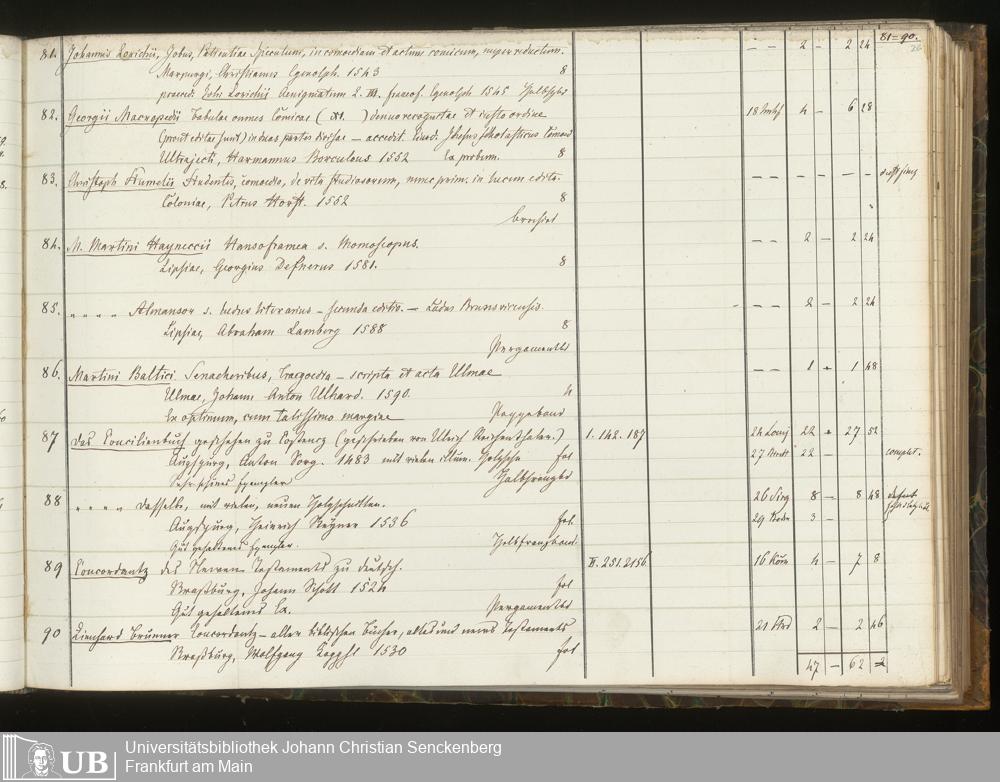 81 = 90.
26
81. Johannis Lorichii, Jobus, Patientiae Speculum, in comoediam et actum comicum, nuper redactum. – – 2 – 2 24
Marpurgi, Christianus Egenolph. 1543 8
praeced. Joh. Lorichii Aenigmatum L. III. francof. Egenolph 1545
82. Georgii Macropedii Fabulae omnes Comicae (XI.) denuo recognitae et iusto ordine 18 4 – 6 28
(prout editae sunt) in duas partes divisae – accedit.
Ultrajecti, Harmannus Borculous 1552 8
83. Christoph Stumelii Studentes, comoedia, de vita studiosorum, nunc prim. in lucem edita. – – – – – –
Coloniae, Petrus Horst. 1552 8
broschirt
84. M. Martini Hayneccii Hansoframea s. Momoscopus. – – 2 – 2 24
Lipsiae, Georgius Defnerus 1581. 8
85. " " " " Almansor s. ludus literarius – secunda editio. – Ludus – – 2 – 2 24
Lipsiae, Abraham Lamberg 1588 8
Pergamentbd
86. Martini Baltici Senacheribus, tragoedia – scripta et acta Ulmae – – 1 + 1 48
Ulmae, Johann Anton Ulhard. 1590. 4
Ex. optimum, cum latissimo margine Pappeband
87 Das Concilienbuch geschehen zu Costencz (geschrieben von Ulrich Reichenthaler.) 1. 142. 187 24 22 + 27 52
Augspurg, Anton Sorg. 1483 mit vielen illum. Holzschn fol 27 22 – complet.
Sehr schönes Exemplar Halbfranzbd
88 " " " " dasselbe, mit vielen, neuen Holzschnitten. 26 8 – 8 48 defect
Augspurg, Heinrich Steyner 1536 fol. 29 3 –
Gut gehaltenes Exemplar. Halbfranzband.
89 Concordantz des Newen Testaments zu deutsch. II. 251. 2156 16 4 – 7 8
Strassburg, Johann Schott 1524 fol
Gut gehaltenes Ex. Pergamentbd
90 Lienhard Brunner Concordantz – aller biblischen Bücher, altes und neues Testaments 21 2 – 2 46
Strassburg, WolfgangKöpphl 1530 fol
47 – 62 2
UB Universitätsbibliothek Johann Christian Senckenberg
Frankfurt am Main